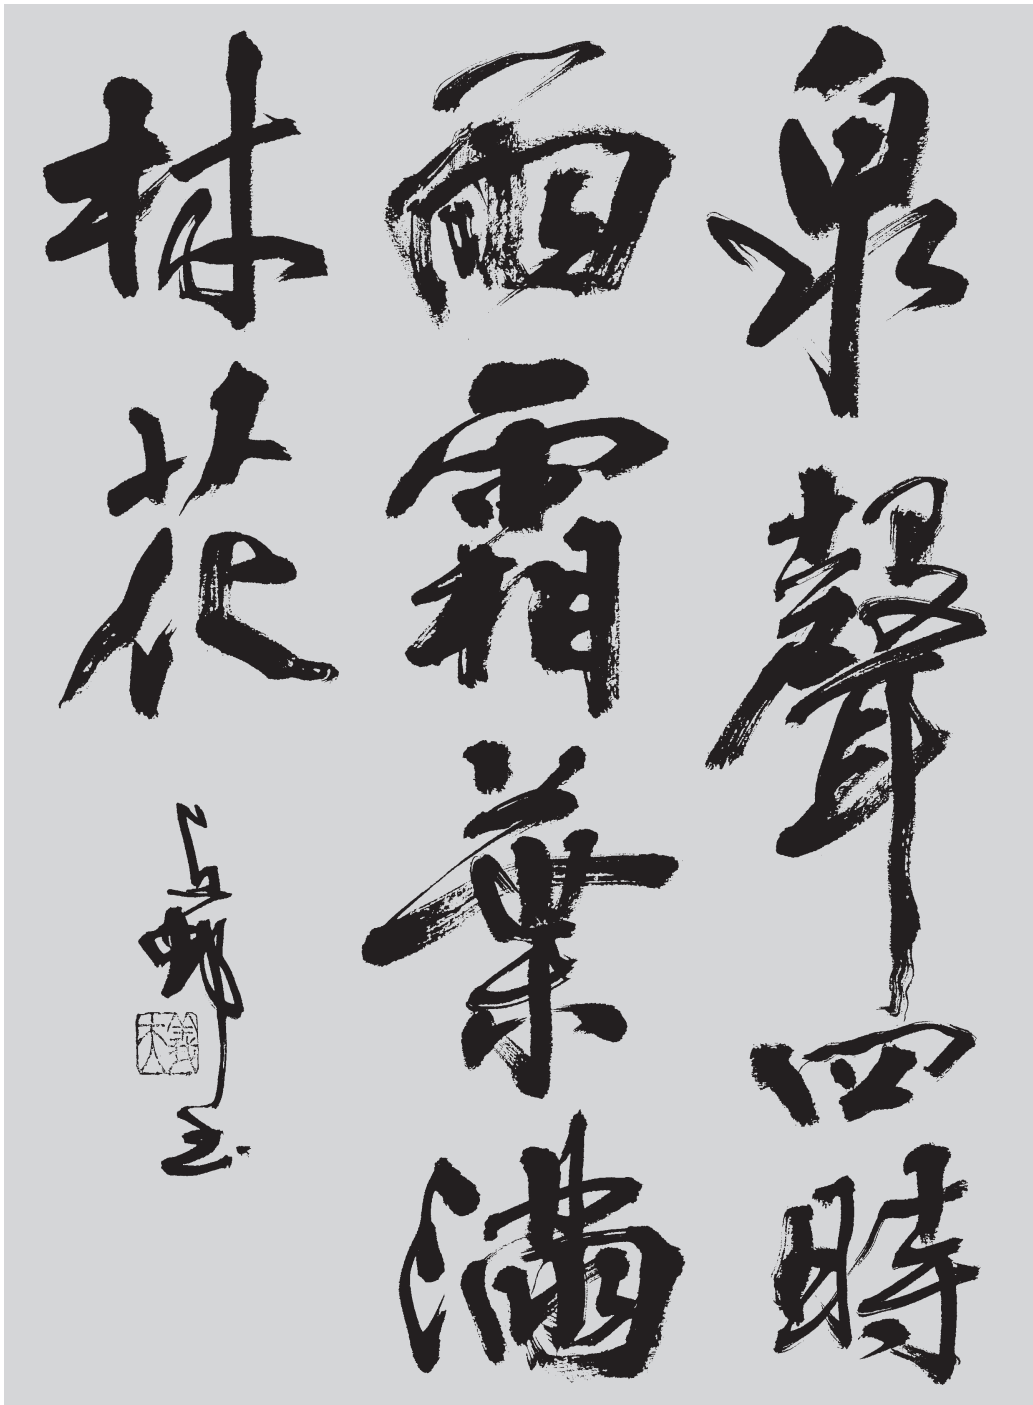 泉聲四時
雨霜葉滿
林花
書